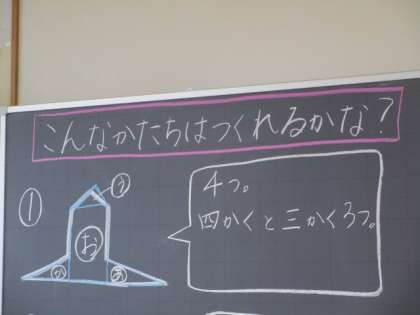 こんなかたちはつくれるかな?
①
う
お
4つ。
四かくと三かくろつ。